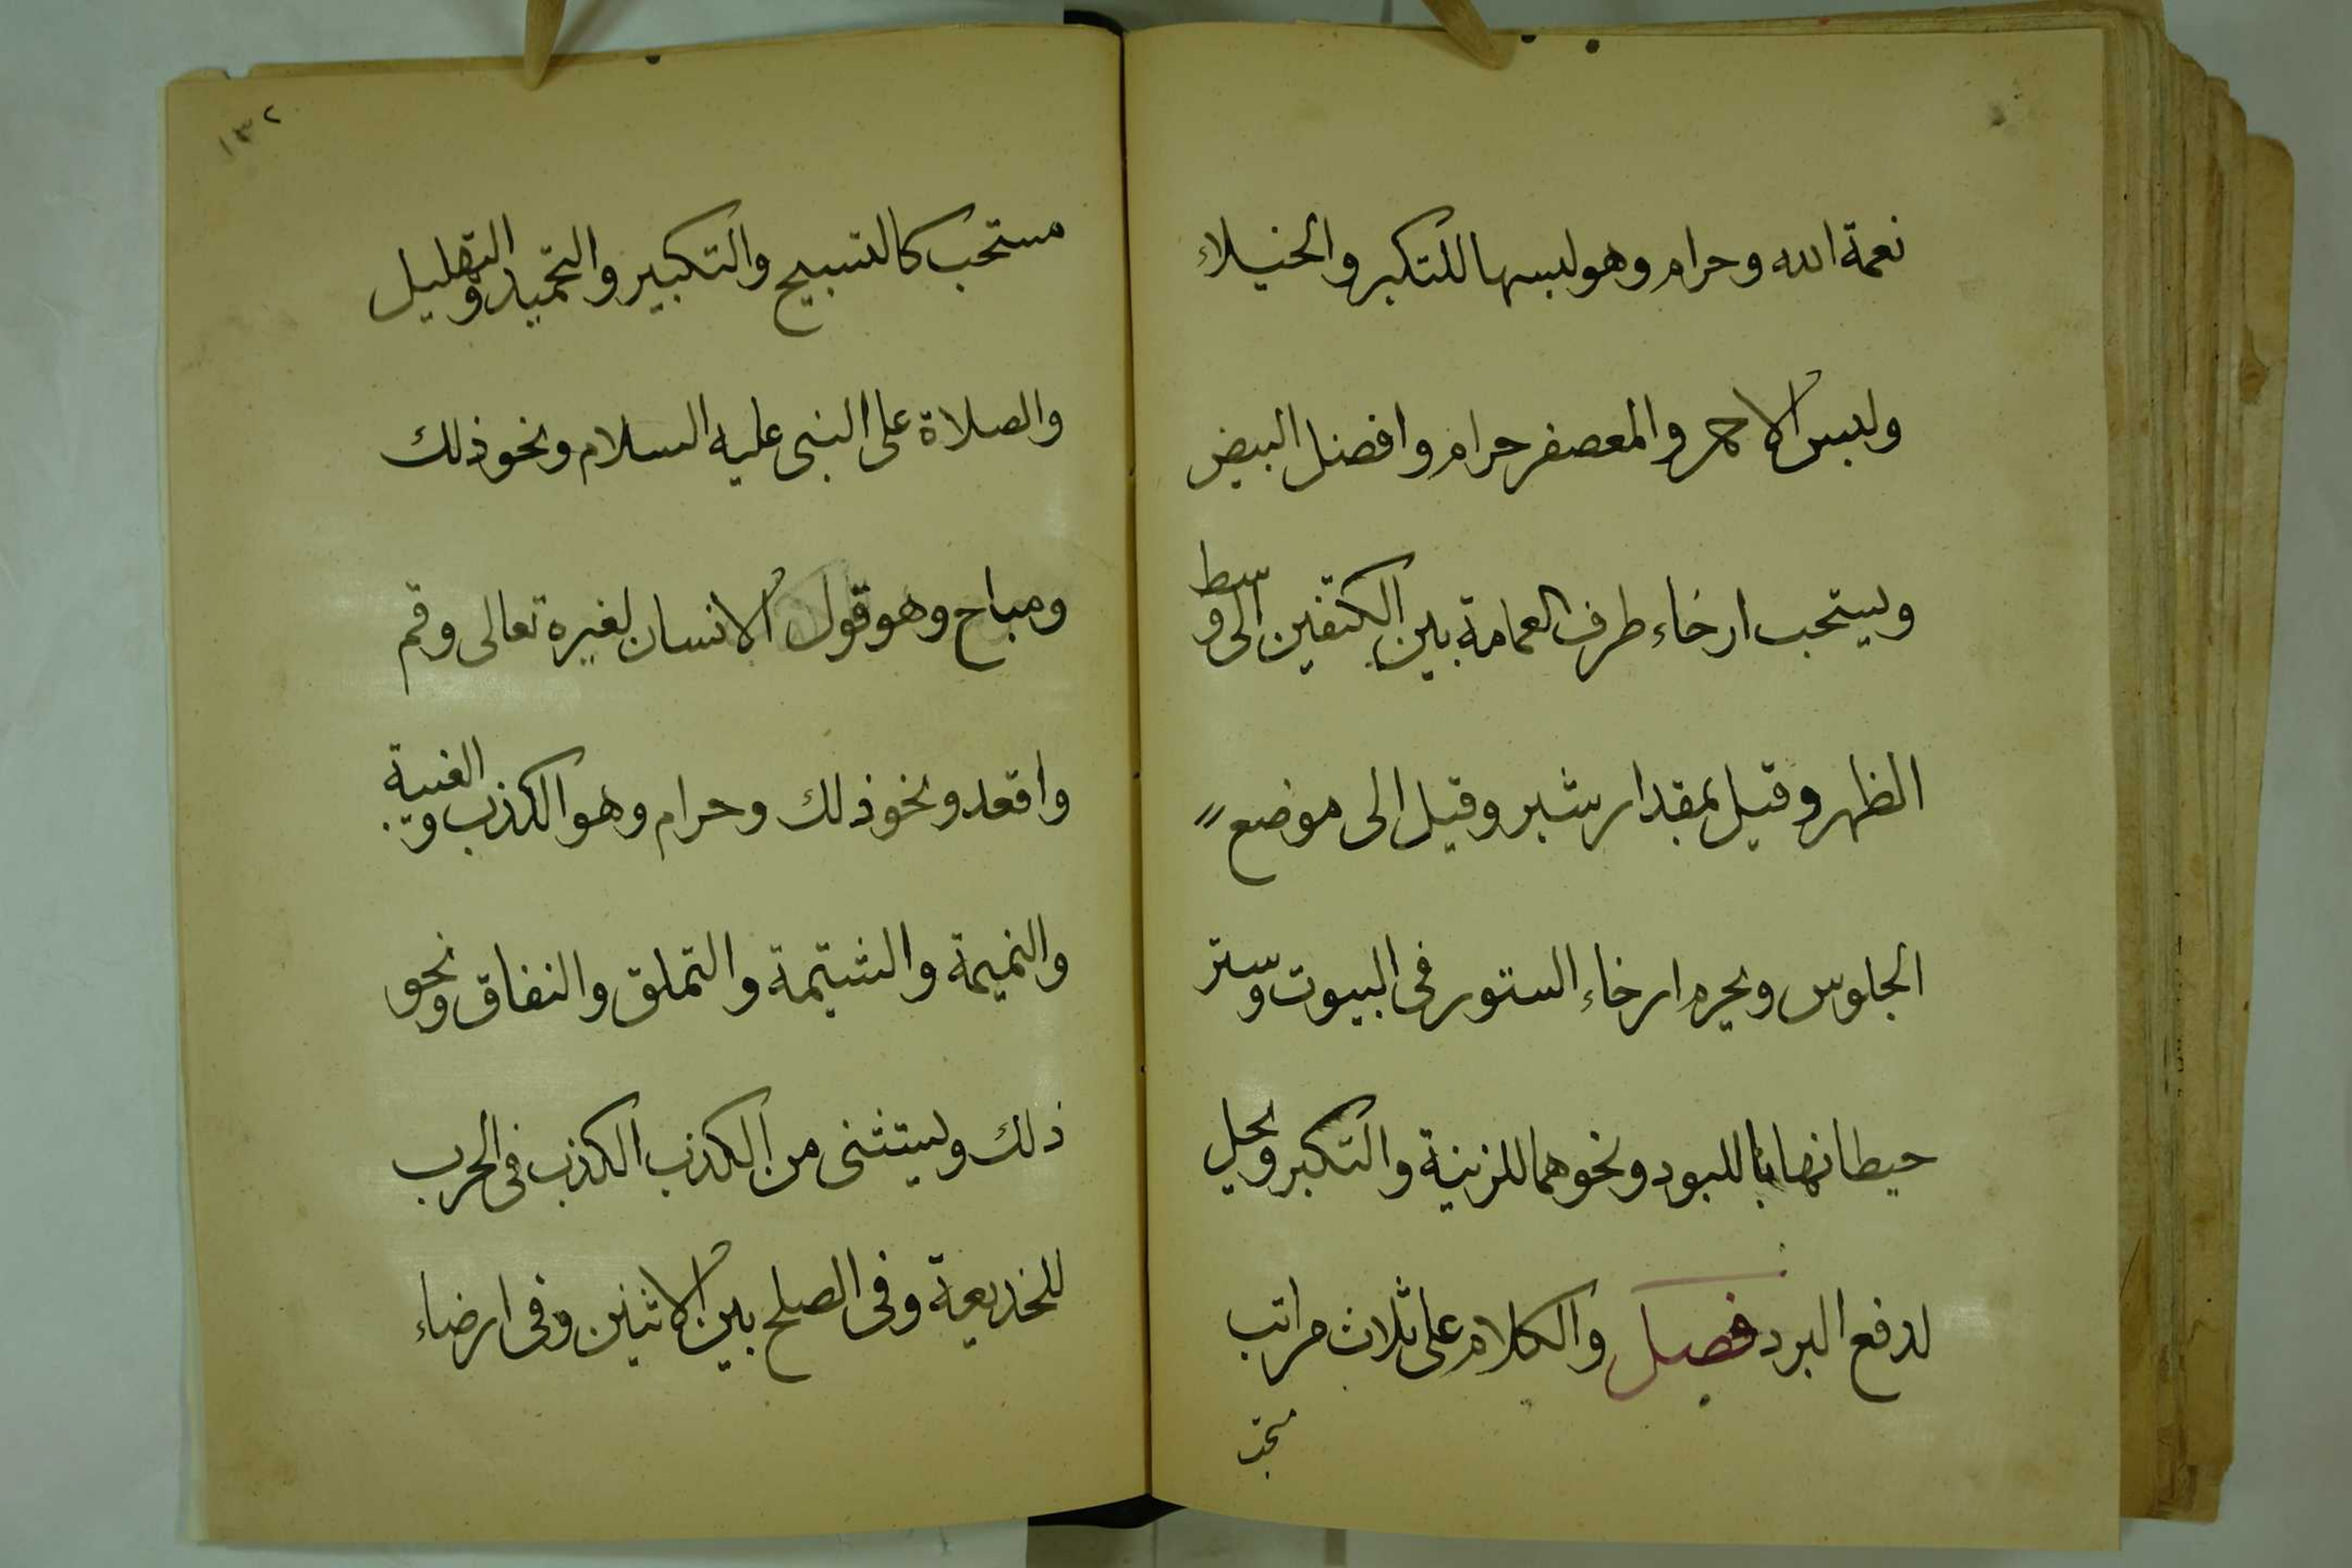 نعمة الله وحرام وهو لبسها للتكبر والخيلاء
ولبس الاحمر والمعصفر حرام وافضل البيض
ويستحب ارخاء طرف العمامة بين الكتفين الى وسط
الظهر وقيل بمقدار شبر وقيل الى موضع
الجلوس ويحرم ارخاء الستور فى البيوت وستر
حيطانها باللبود ونحوهما للزينة والتكبر ويحل
لدفع البرد فصل والكلام على ثلاث مراتب
مستحب
١٣٢
مستحب كالتسبيح والتكبير والتحميد والتهليل
والصلاة على النبى عليه السلام ونحو ذلك
ومباح وهو قول الانسان لغيره تعالى وقم
واقعد ونحو ذلك وحرام وهو الكذب والغيبة
والنميمة والشتيمة والتملق والنفاق ونحو
ذلك ويستثنى من الكذب الكذب فى الحرب
للخديعة وفى الصلح بين الاثنين وفى ارضاء